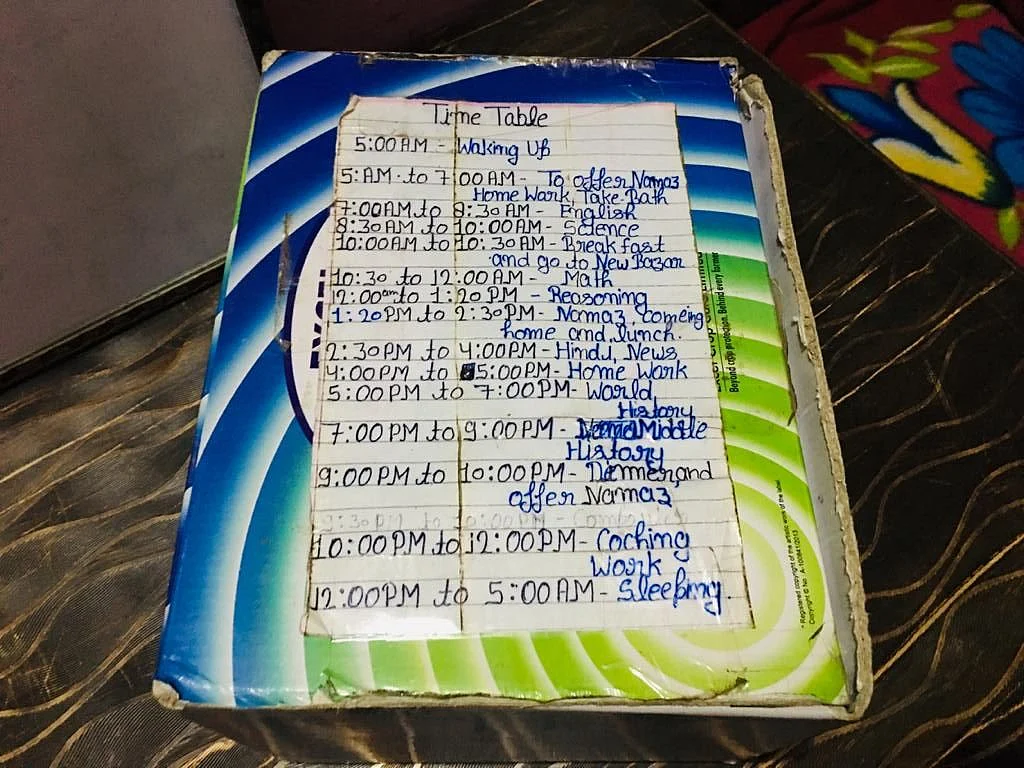 Time Table
5:00 AM - Waking Up
5:AM. to 7 00 AM - To offer Namaz
Home Work, Take Bath
7:00AM to 8:30 AM - English
8:30 AM to 10:00 AM - Science
10:00AM to 10:30 AM - Break fast
and go to New Bazar
10:30 to 12:00 AM - Math
12:00am to 1:20 PM - Reasoning
1:20PM to 2:30PM - Namaz, comeing
home and lunch.
2:30PM to 4:00PM - Hindi, News
4:00PM to 5:00PM - Home Work
5:00PM to 7:00PM - World
History
7:00PM to 9:00PM - Middle
History
9:00PM to 10:00PM - Dinner and
offer Namaz
9:30PM to 10:00PM -
10:00PM to 12:00PM - Coching
Work
12:00PM to 5:00AM - Sleeping.
Beyond copy protection. Behind every former
* Registered copyright of the artistic work of the label.
Copyright © No. A-100841/2013